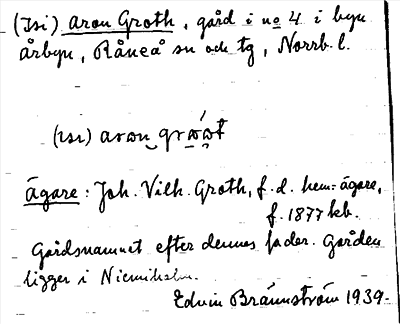 (Isi) Aron Groth, gård i no 4 i byn
årbyn, Råneå sn och tg, Norrb. l.
(ısı) aron
ägare: Joh. Vilh. Groth, f. d. hem. ägare,
f. 1877 kb.
Gårdsnamnet efter dennes fader. Gården
ligger i Niemiholm.
Edvin Brännström 1939.